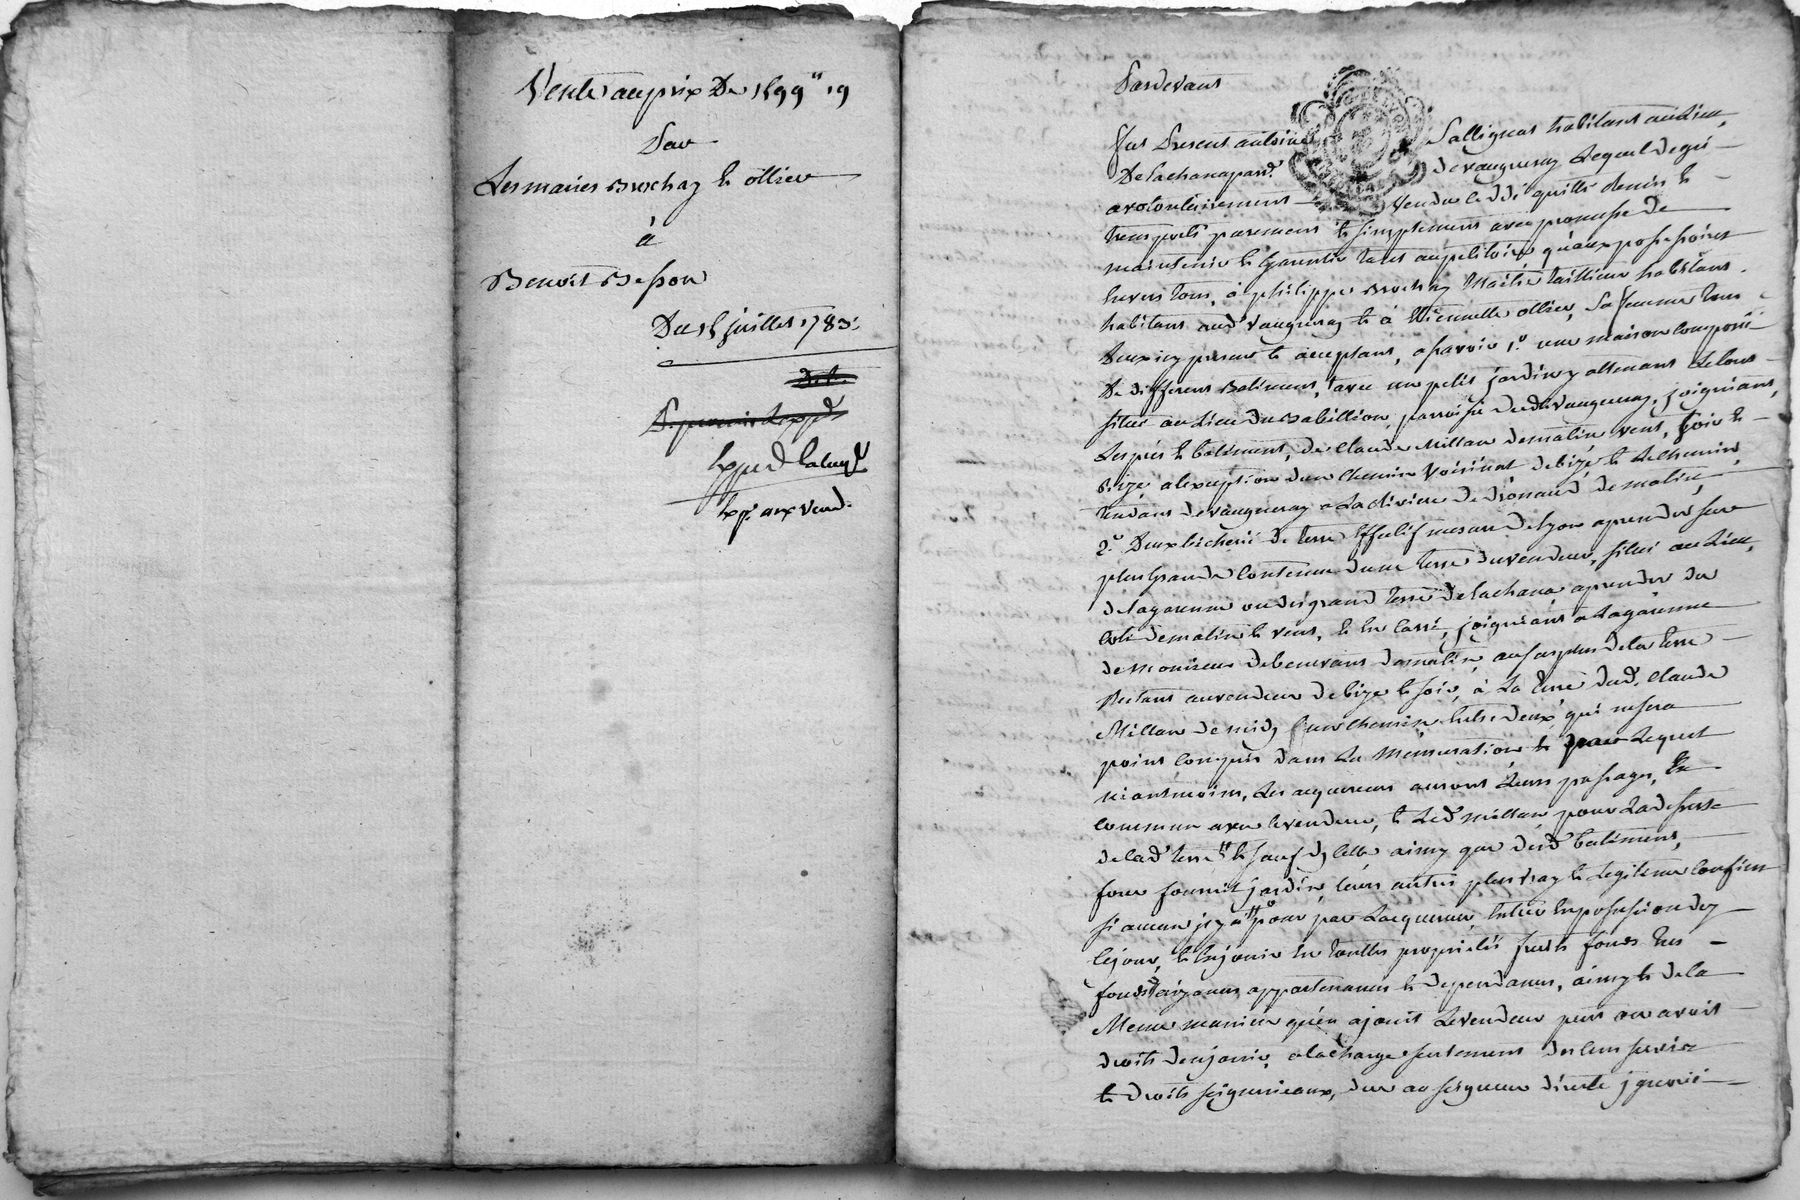 Vente au prix De 1599" 19
Par
Les maries Brochay et ollier
à
Benoit Besson
Du 15 juillet 1783.
Expéd
Exp. aux vend.
Pardevant
fut Present antoine Sallignat habitant au Lieu
De lachana par. de vaugneray Lequel de gré
a volontairement vendu cédé quitté remis et
transporté purement et simplement avec promesse de
maintenir et garantir tant au petitoire qu'au possessoire
envers tous, à philippe Brochay Maitre tailleur habitant
habitant aud. vaugneray et à Etiennette ollier, sa femme tous
Deux icy present et acceptant, a savoir 1.° une maison composé
De differens Batimens, avec un petit jardin y attenant Le tout
situé au Lieu du Babillion, parroisse dud. vaugneray, joignant
Les pres et batiment, de Claude Millan de matin vent, soir et
bize a lexception d'un chemin voisinal de bize et Le chemin
tendant de vaugneray a La riviere de de matin,
2.° Deux bicheré de terre Effectif mesure de Lyon a prendre sur
plus grande contenue d'une terre du vendeur, situé au Lieu,
de lagarenne ou des grand terre de lachana a prendre du
coté de matin et vent, et en carré, joignant a Lagarenne
de Monsieur de benevant de matin, au surplus de la terre
Restant au vendeur de bize et soir, à La terre dud. Claude
Millan de midy un chemin Entre deux qui ne sera
point compris dans La Mensuration et par Lequel
néantmoins, Les acquereurs auront Leurs passages, En
commun avec le vendeur, et Led. millan pour La desserte
de lad. terre et sauf dicelle ainsy que desd. batiment,
four jardin, leurs autres plus vray et Legitime confins
si aucun y a pour par Lacquereur, entrer En possession dez
cejour, et En jouir En touttes proprietés fonds tres
fonds aizances appartenances et dependances, ainsy et de la
Meme maniere qu'en a jouit Le vendeur put ou avoit
droits den jouir, a la charge seulement des cens servis
et droits seigneuriaux, due au seigneur directe